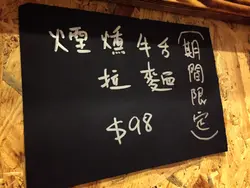 煙燻牛舌
拉麵
$98
(期間限定)